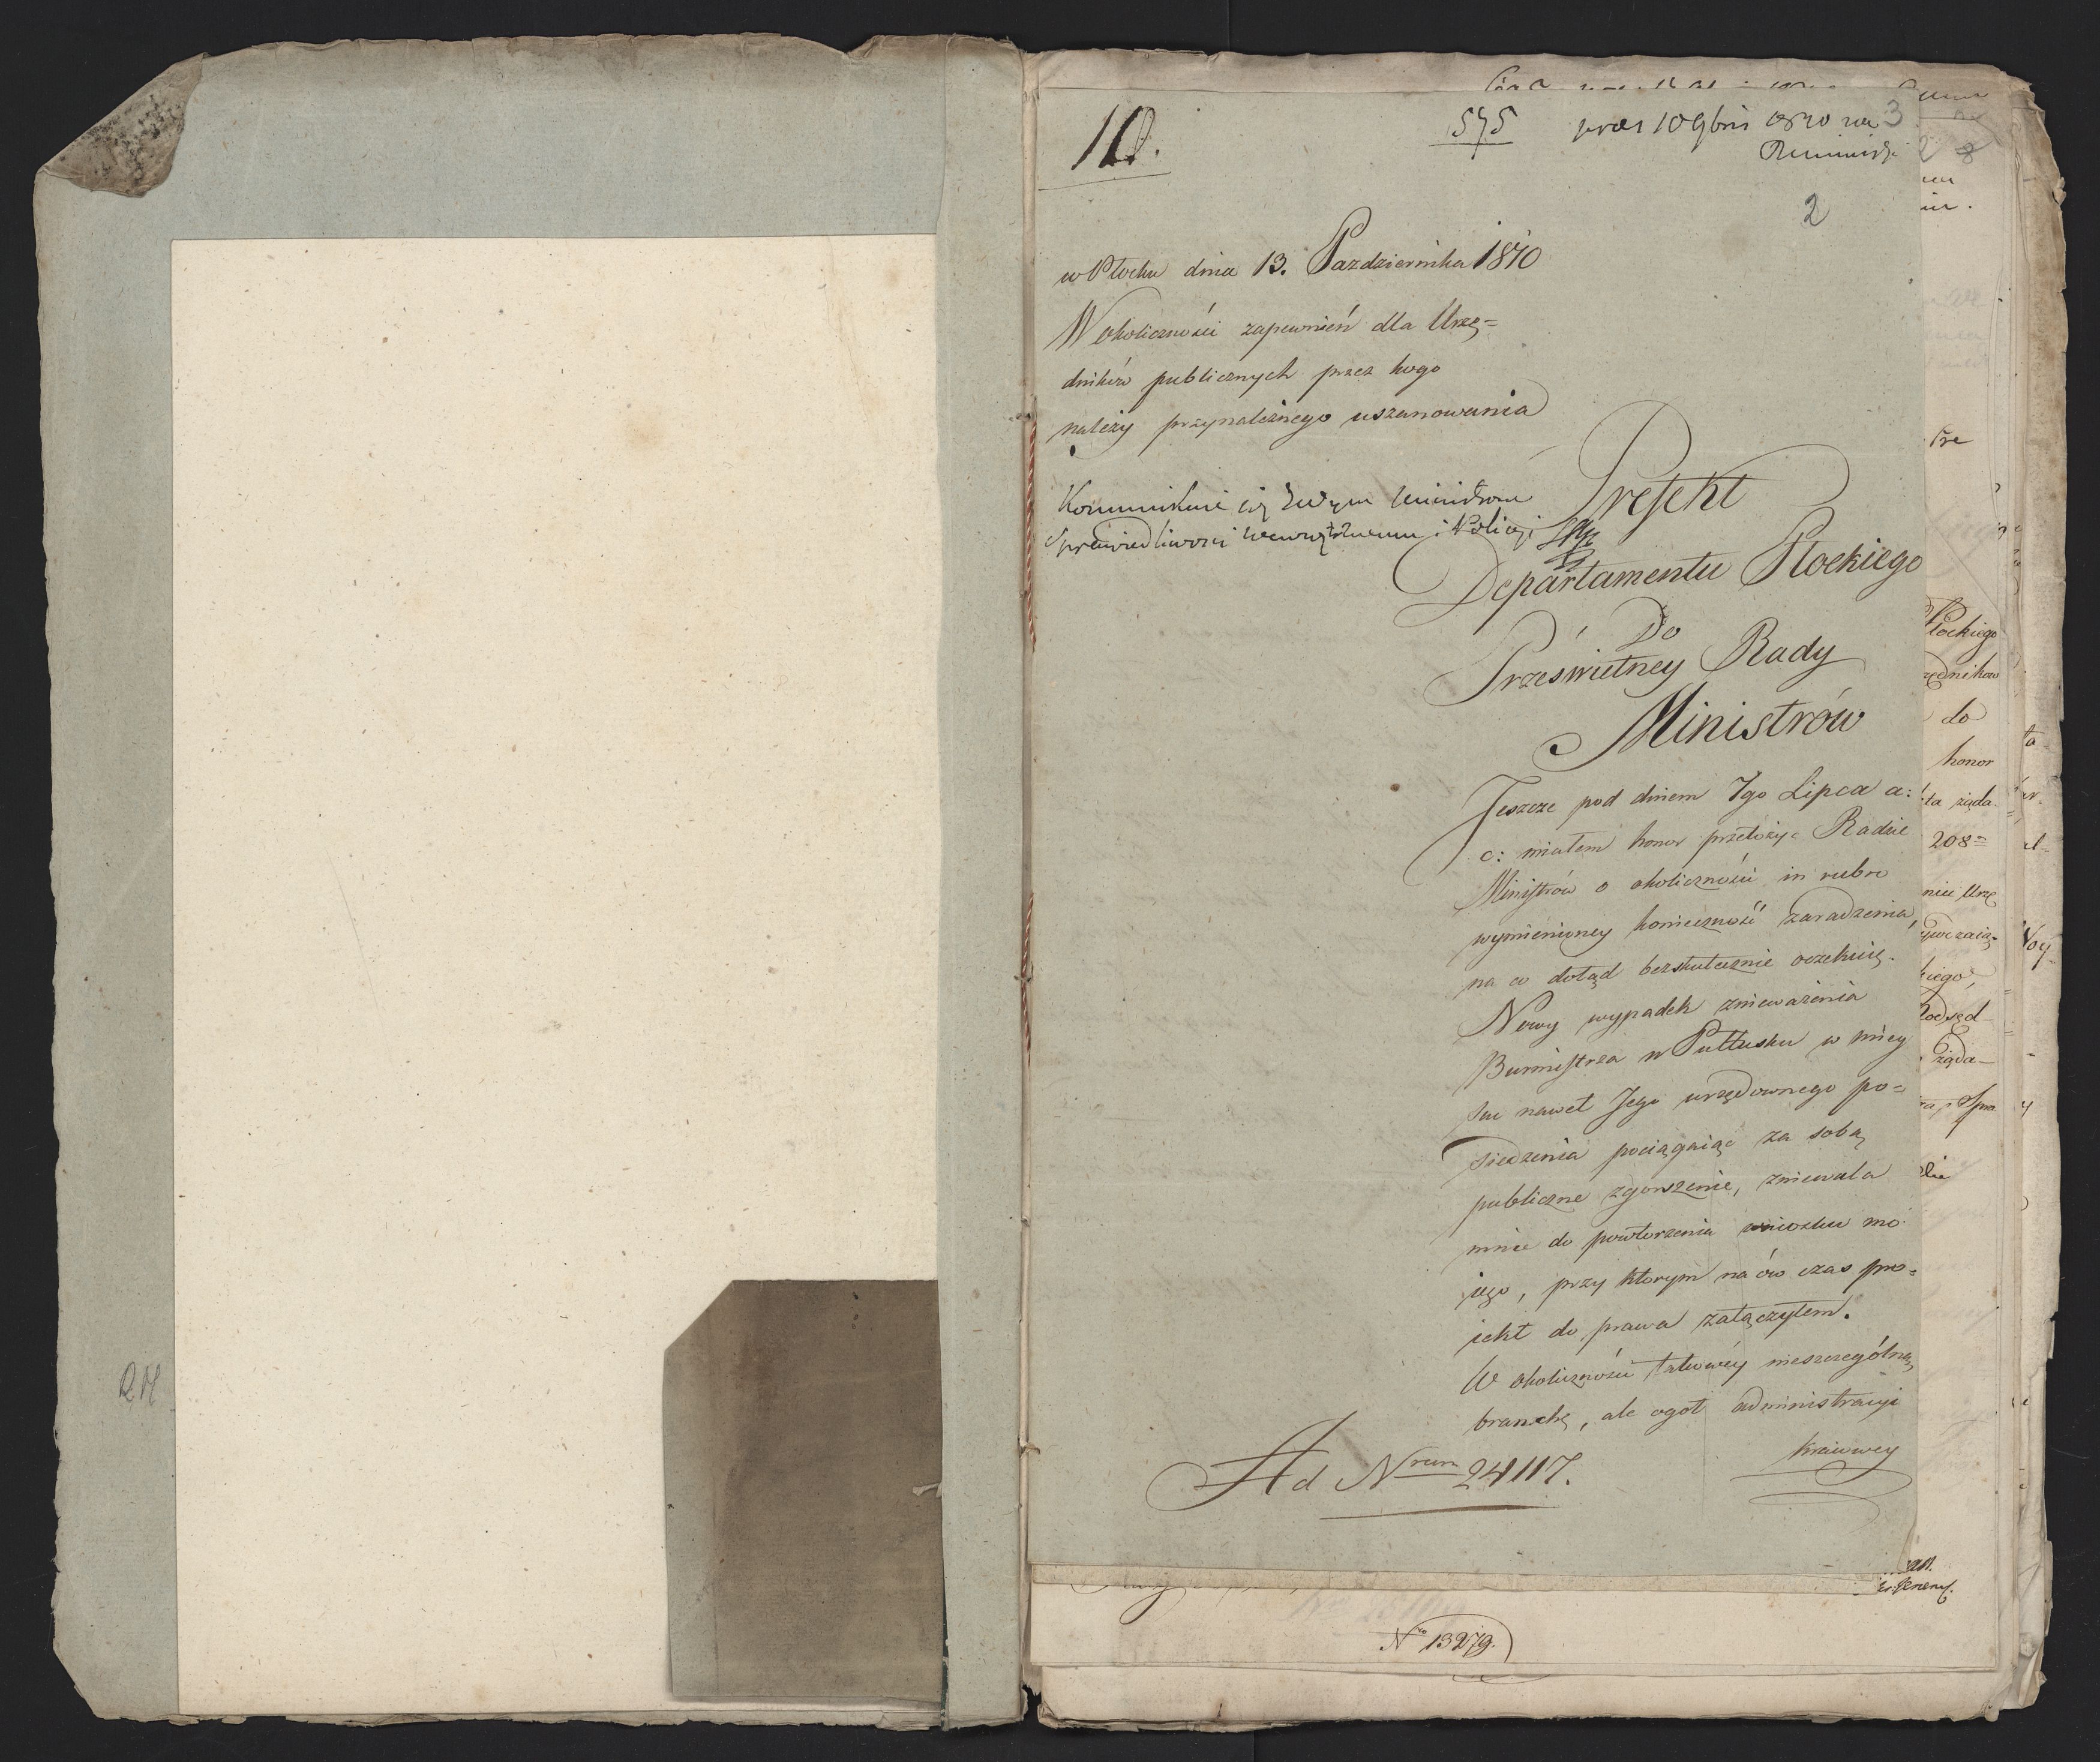 10.
575
praes 10 9bris 1810 ru
3
2
w Płocku dnia 13. Pazdziernika 1810
W okoliczności zapewnień dla Urzę=
dników publicznych przez kogo
należy przynależnego uszanowania
Kommunikuie się
Sprawiedliwości Wewnętrznemu i Policyi
Prefekt
Departamentu Płockiego
Do
Prześwietney Rady
Ministrów
Jeszcze pod dniem 7go Lipca a:
c: miałem honor przełożyć Radzie
Ministrów o okoliczności in rubro
wymienioney konieczność zaradzenia,
na co dotąd bezskutecznie oczekuię.
Nowy wypadek znieważenia
Burmistrza w Pułtusku w miey
scu nawet Jego urzędownego po=
siedzenia pociągaiąc za sobą
publiczne zgorszenie, zniewala
mnie do powtorzenia wniosku mo
iego, przy ktorym na ów czas pro=
iekt do prawa załączyłem.
W okoliczności takowéy nieszczególną
branchę, ale ogoł administracyi
kraiowey
Ad Nrum 24117.
24
Płockiego
do
honor
208=
No 13279.